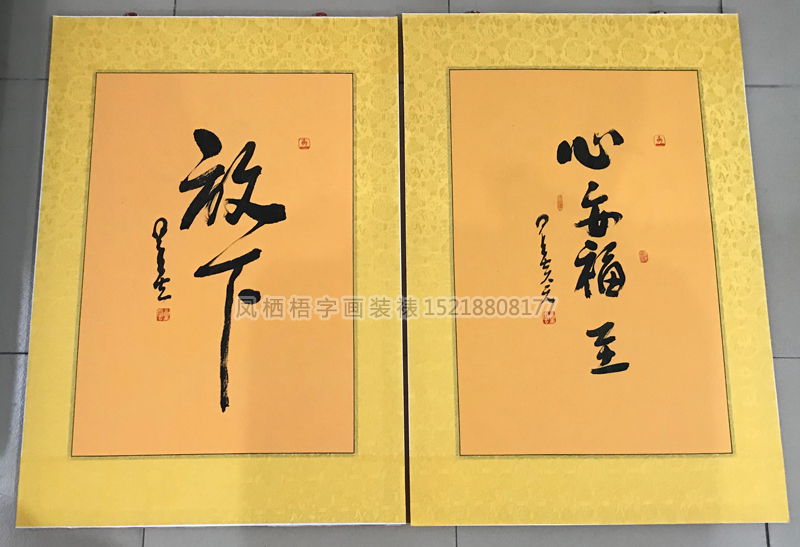 放下
心安福至
凤栖梧字画装裱15218808177